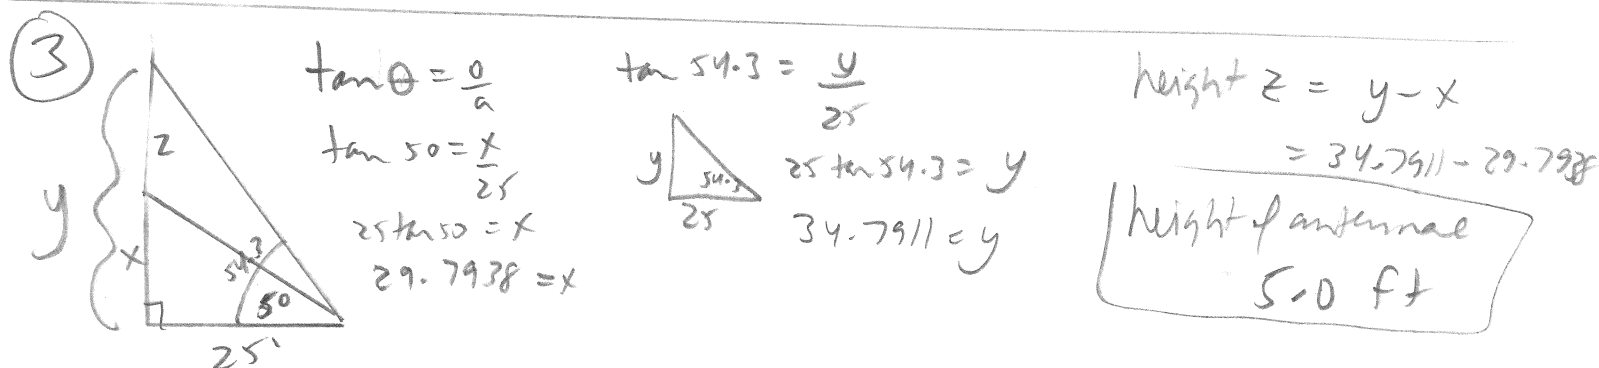 3
y
z
x
54.3
50
25'
tan θ = o/a
tan 50 = x/25
25 tan 50 = x
29.7938 = x
tan 54.3 = y/25
y
54.3
25
25 tan 54.3 = y
34.7911 = y
height z = y - x
= 34.7911 - 29.7938
height of antennae
5.0 ft